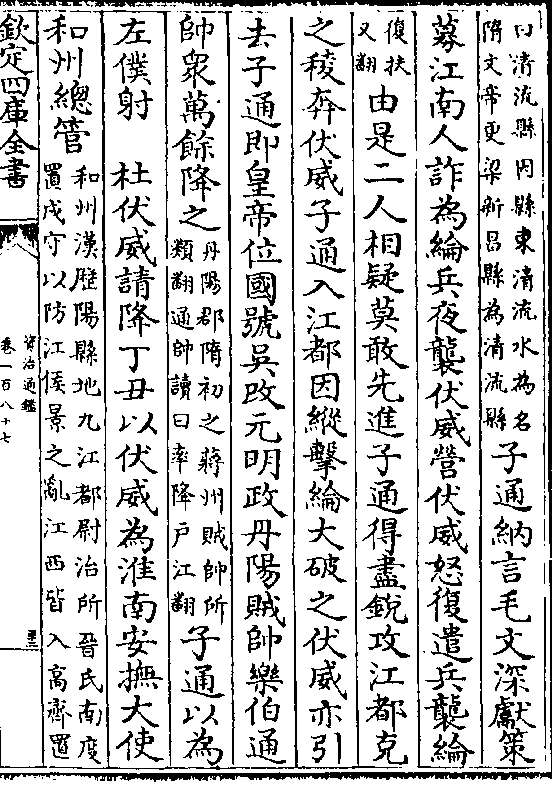 曰清流縣因縣東清流水為名
隋文帝更梁新昌縣為清流縣
子通納言毛文深獻策
募江南人詐為綸兵夜襲伏威營伏威怒復遣兵襲綸
復扶
又翻
由是二人相疑莫敢先進子通得盡銳攻江都克
之稜奔伏威子通入江都因縱擊綸大破之伏威亦引
去子通即皇帝位國號吳改元明政丹陽賊帥樂伯通
帥衆萬餘降之
丹陽郡隋初之蔣州賊帥所
類翻通帥讀曰率降戶江翻
子通以為
左僕射
杜伏威請降丁丑以伏威為淮南安撫大使
和州總管
和州漢歷陽縣地九江都尉治所晉氏南度
置戍守以防江侯景之亂江西皆入高齊置
欽定四庫全書
資治通鑑
卷一百八十七